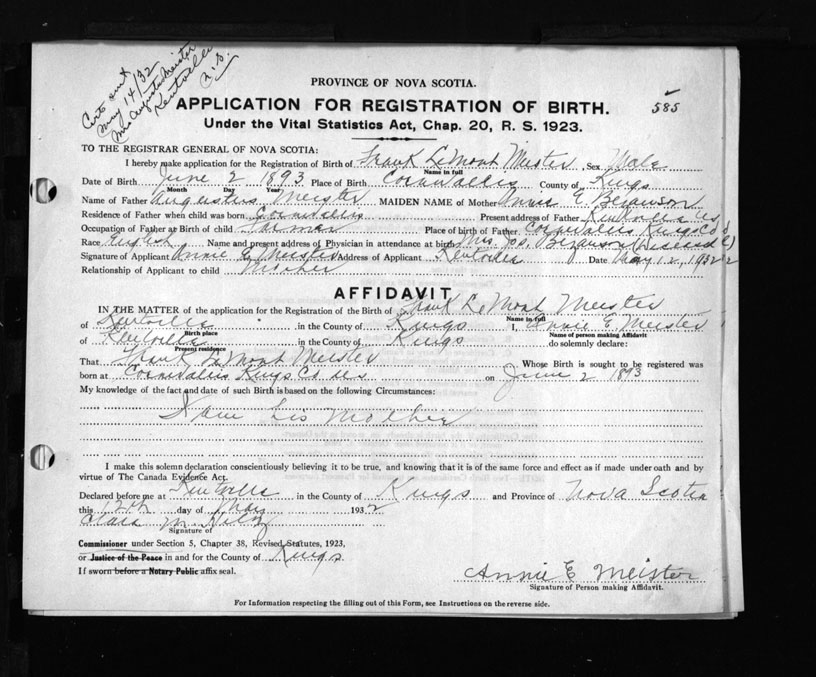 Cert sent
May 14/32
Mrs Augustus Meister
Kentville
N.S.
PROVINCE OF NOVA SCOTIA.
APPLICATION FOR REGISTRATION OF BIRTH.
585
Under the Vital Statistics Act, Chap. 20, R. S. 1923.
TO THE REGISTRAR GENERAL OF NOVA SCOTIA:
I hereby make application for the Registration of Birth of Frank LeMont Meister, Sex Male
Name in full
Date of Birth June 2 1893 Place of Birth Cornwallis County of Kings
Month Day Year
Name of Father Augustus Meister MAIDEN NAME of Mother Annie E Bezanson
Residence of Father when child was born Cornwallis Present address of Father Kentville NS
Occupation of Father at Birth of child Farmer Place of birth of Father Cornwallis Kings Co
Race English Name and present address of Physician in attendance at birth Mrs. Jos. Bezanson (Deceased)
Signature of Applicant Annie E Meister Address of Applicant Kentville Date May 12, 1932
Relationship of Applicant to child Mother
AFFIDAVIT
IN THE MATTER of the application for the Registration of the Birth of Frank LeMont Meister
Name in full
of Kentville in the County of Kings I, Annie E Meister
Birth place Name of person making Affidavit
of Kentville in the County of Kings do solemnly declare:
Present residence
That Frank LeMont Meister Whose Birth is sought to be registered was
born at Cornwallis Kings Co NS on June 2 1893
My knowledge of the fact and date of such Birth is based on the following Circumstances:
I am his mother
I make this solemn declaration conscientiously believing it to be true, and knowing that it is of the same force and effect as if made under oath and by
virtue of The Canada Evidence Act.
Declared before me at Kentville in the County of Kings and Province of Nova Scotia
this 12th day of May 1932
Clara M.
Signature of
Commissioner under Section 5, Chapter 38, Revised Statutes, 1923,
or Justice of the Peace in and for the County of Kings
If sworn before a Notary Public affix seal.
Annie E Meister
Signature of Person making Affidavit.
For Information respecting the filling out of this Form, see Instructions on the reverse side.